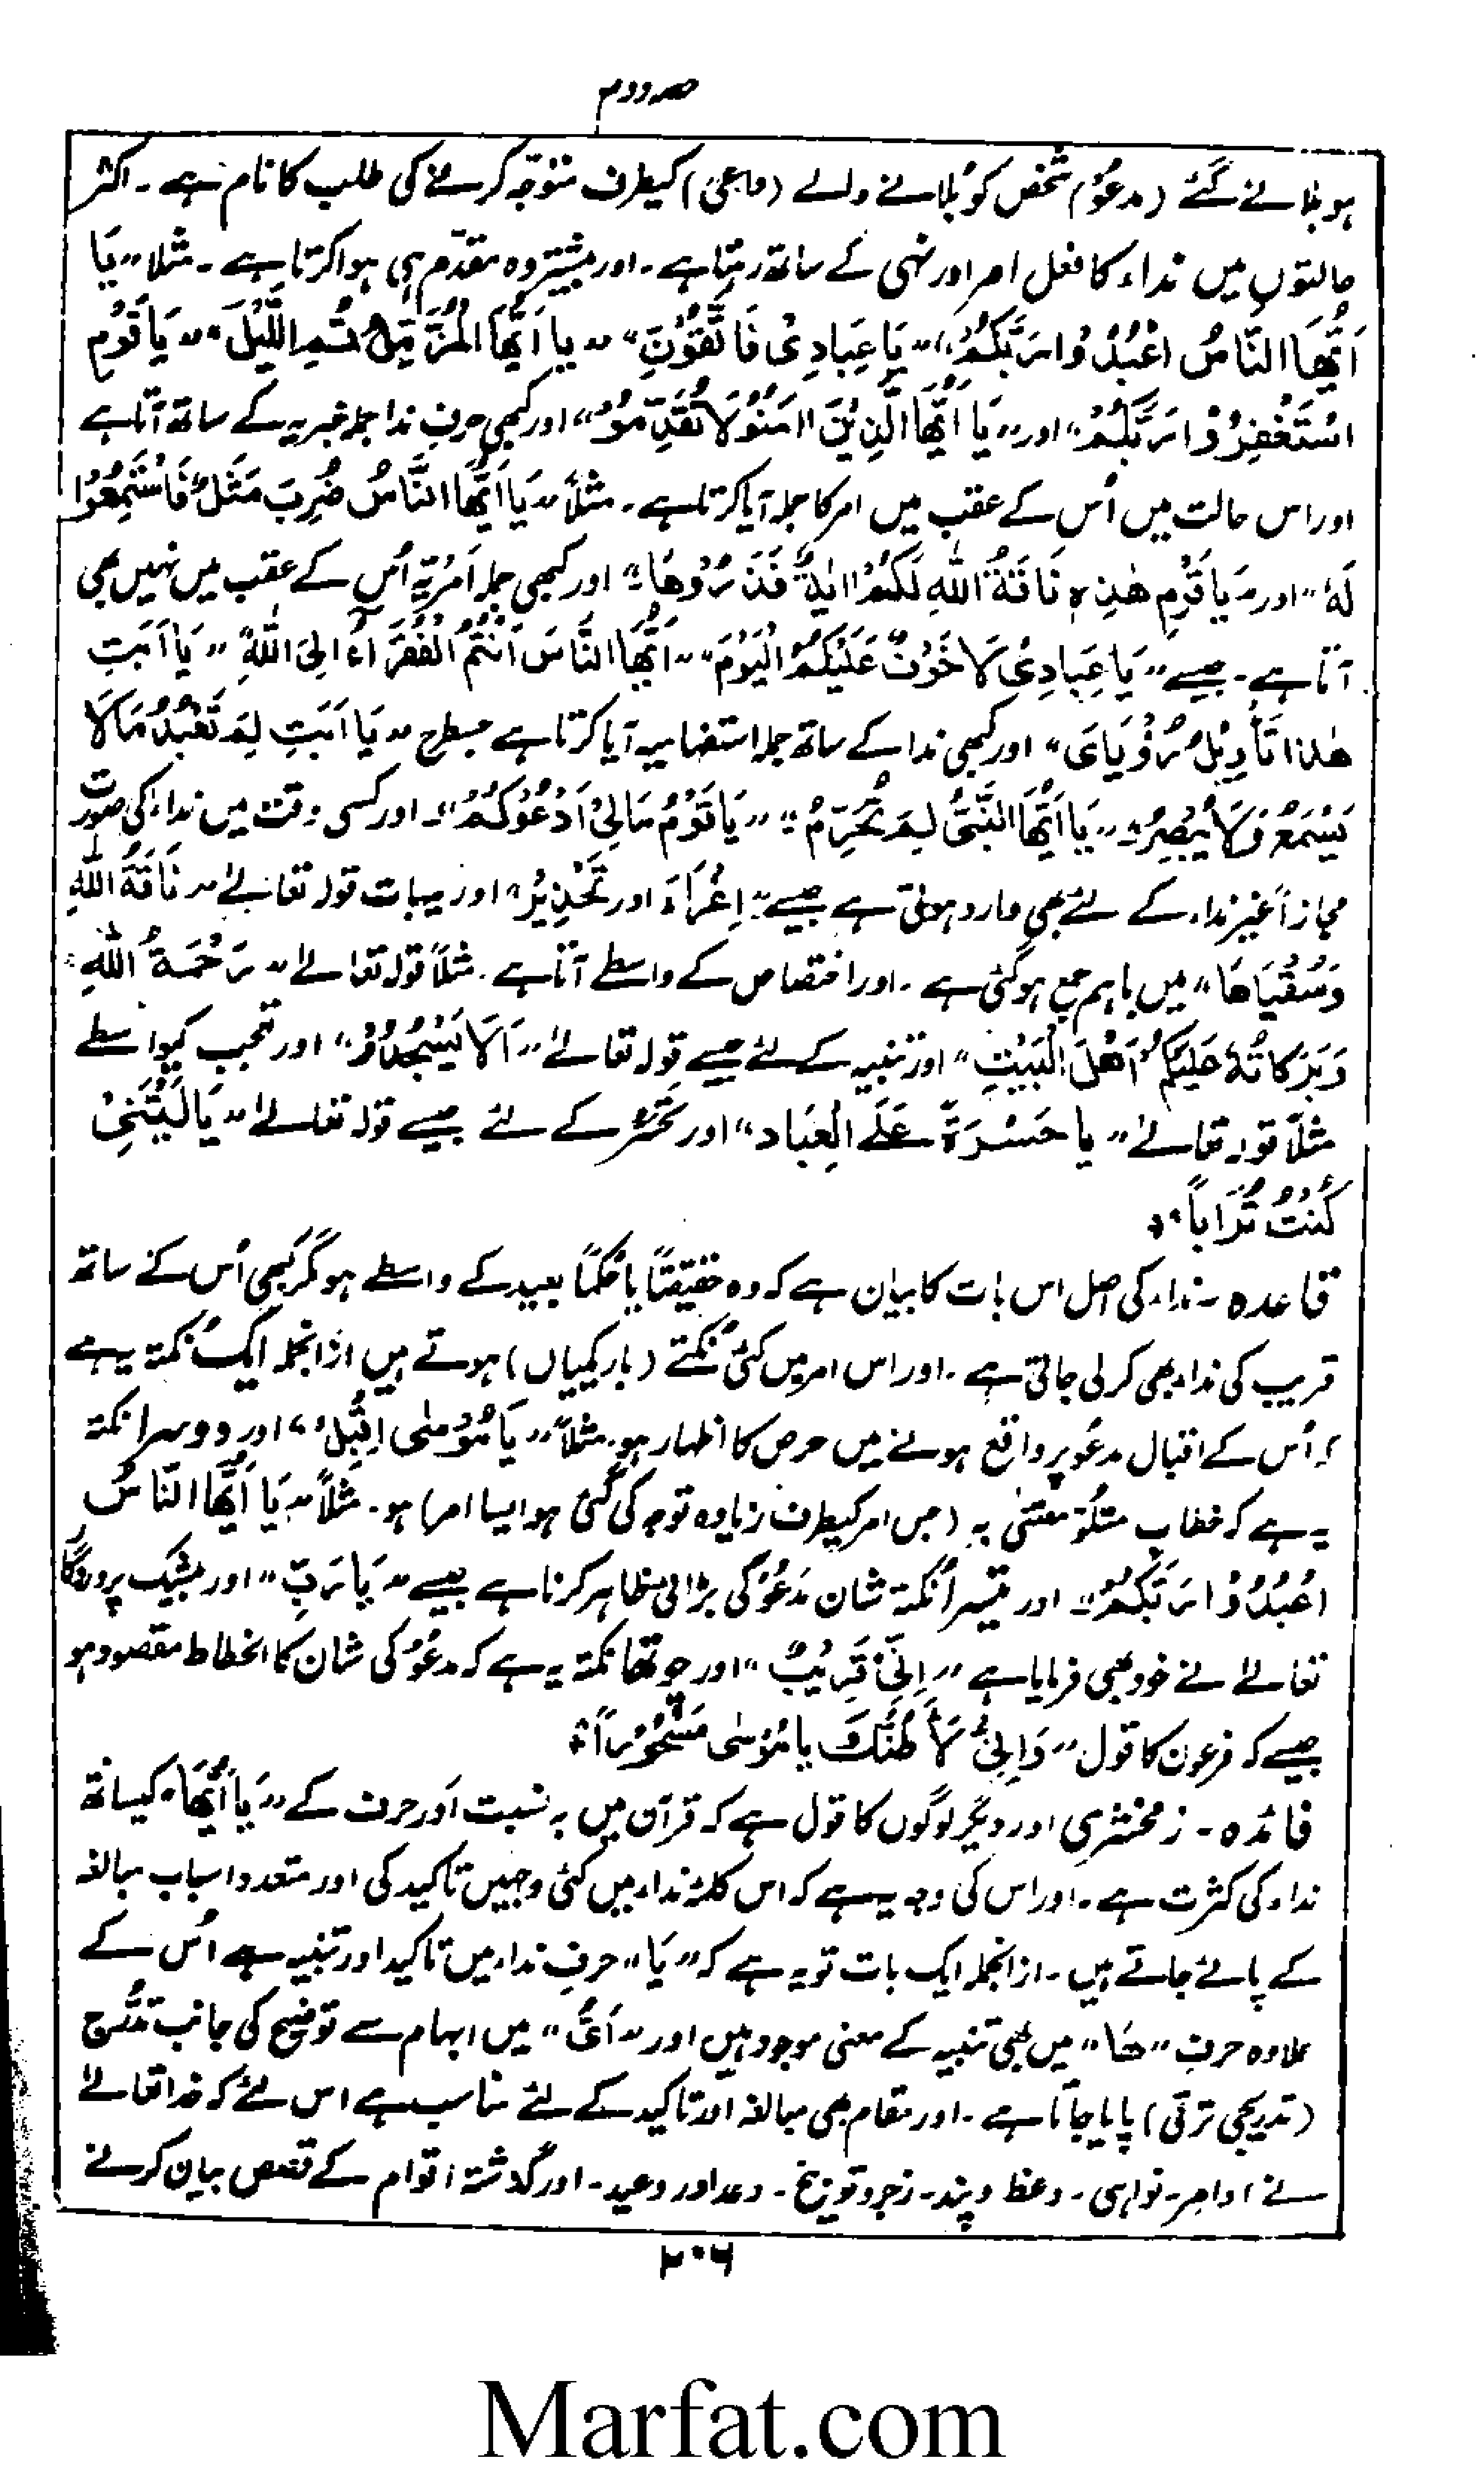 حصہ دوم
ہو بلانے گئے (مدعُو) شخص کو بُلانے والے (داعی) کیطرف متوجّہ کرنے کی طلب کا نام ہے ۔ اکثر
حالتوں میں نداء کا فعل امر اور نہی کے ساتھ رہتا ہے ۔ اور بیشتر وہ مقدّم ہی ہوا کرتا ہے ۔ مثلا ”یَا
اَیُّھَا النَّاسُ اعْبُدُوْا رَبَّکُمْ“ ”یَا عِبَادِیْ فَاتَّقُوْنِ“ ”یا اَیُّھَا الْمُزَّمِّلُ قُمِ اللَّیْلَ“ ”یَا قَوْمِ
اسْتَغْفِرُوْا رَبَّکُمْ“ اور ”یَا اَیُّھَا الَّذِیْنَ اٰمَنُوْا لَا تُقَدِّمُوْا“ اور کبھی حرفِ ندا جملہ خبریہ کے ساتھ آتا ہے
اور اس حالت میں اُس کے عقب میں امر کا جملہ آیا کرتا ہے ۔ مثلاً ”یَا اَیُّھَا النَّاسُ ضُرِبَ مَثَلٌ فَاسْتَمِعُوْا
لَہٗ“ اور ”یَا قَوْمِ ھٰذِہٖ نَاقَۃُ اللّٰہِ لَکُمْ اٰیَۃً فَذَرُوْھَا“ اور کبھی جملہ اَمْرِیّہ اُس کے عقب میں نہیں بھی
آتا ہے ۔ جیسے ”یَا عِبَادِیْ لَا خَوْفٌ عَلَیْکُمُ الْیَوْمَ“ ”اَیُّھَا النَّاسُ اَنْتُمُ الْفُقَرَآءُ اِلَی اللّٰہِ“ ”یَا اَبَتِ
ھٰذا تَأْوِیْلُ رُؤْیَایَ“ اور کبھی ندا کے ساتھ جملہ استفہامیہ آیا کرتا ہے جسطرح ”یَا اَبَتِ لِمَ تَعْبُدُ مَا لَا
یَسْمَعُ وَلَا یُبْصِرُ“ ”یَا اَیُّھَا النَّبِیُّ لِمَ تُحَرِّمُ“ ”یَا قَوْمُ مَالِیْ اَدْعُوْکُمْ“ ۔ اور کسی وقت میں نداء کی صورت
مجازاً غیر نداء کے لئے بھی وارد ہوتی ہے جیسے ”اِغْرَاءَ اور تَحْذِیْرُ“ اور یہ بات قولہ تعالٰے ”نَاقَۃُ اللّٰہِ
وَسُقْیَاھَا“ میں باہم جمع ہو گئی ہے ۔ اور اختصاص کے واسطے آتا ہے ۔ مثلاً قولہ تعالٰے ”رَحْمَۃُ اللّٰہِ
وَبَرَکَاتُہٗ عَلَیْکُمْ اَھْلَ الْبَیْتِ“ اور تنبیہ کے لئے جیسے قولہ تعالٰے ”اَلَا یَسْجُدُوْا“ اور تعجب کیواسطے
مثلاً قولہ تعالٰے ”یا حَسْرَۃً عَلَی الْعِبَاد“ اور تَحَسُّر کے لئے جیسے قولہ تعالٰے ”یَا لَیْتَنِیْ
کُنْتُ تُرَاباً“
قاعدہ ۔ نداء کی اصل اس بات کا بیان ہے کہ وہ حقیقتاً یا حُکماً بعید کے واسطے ہو مگر کبھی اُس کے ساتھ
قریب کی نداء بھی کر لی جاتی ہے ۔ اور اس امر میں کئی نُکتے (باریکیاں) ہوتے ہیں ازانجملہ ایک نُکتہ یہ ہے
کہ اُس کے اقبال مدعُو پر واقع ہونے میں حرص کا اظہار ہو ۔ مثلاً ”یَا مُوْسٰی اَقْبِلْ“ اور دوسرا نکتہ
یہ ہے کہ خطاب متلُوّ معتنیٰ بہ (جس امر کیطرف زیادہ توجہ کی گئی ہو ایسا امر) ہو ۔ مثلاً ”یَا اَیُّھَا النَّاسُ
اعْبُدُوْا رَبَّکُمْ“ اور تیسرا نُکتہ شان مَدعُوّ کی بڑائی ظاہر کرنا ہے جیسے ”یَا رَبِّ“ اور بیشک پروردگار
تعالٰے نے خود بھی فرمایا ہے ”اِنِّیْ قَرِیْبٌ“ اور چوتھا نکتہ یہ ہے کہ مدعُو کی شان کا انحطاط مقصود ہو
جیسے کہ فرعون کا قول ”وَاِنِّیْ لَاَظُنُّکَ یا مُوْسٰی مَسْحُوْراً“
فائدہ ۔ زمخشری اور دیگر لوگوں کا قول ہے کہ قرآن میں بہ نسبت اَور حرف کے ”یَا اَیُّھَا“ کیساتھ
نداء کی کثرت ہے ۔ اور اس کی وجہ یہ ہے کہ اس کلمۂ نداء میں کئی وجہیں تاکید کی اور متعدد اسباب مبالغہ
کے پائے جاتے ہیں ۔ ازانجملہ ایک بات تو یہ ہے کہ ”یَا“ حرفِ نداء میں تاکید اور تنبیہ ہے اُس کے
علاوہ حرف ”ھَا“ میں بھی تنبیہ کے معنی موجود ہیں اور ”اَیُّ“ میں ابہام سے توضیح کی جانب تَدَرُّج
(تدریجی ترقی) پایا جاتا ہے ۔ اور مقام بھی مبالغہ اور تاکید کے لئے مناسب ہے اس لئے کہ خدا تعالٰے
نے اوامر ۔ نواہی ۔ وعظ و پند ۔ زجر و توبیخ ۔ وعد اور وعید ۔ اور گذشتہ اقوام کے قصص بیان کرنے
۲۰۶
Marfat.com